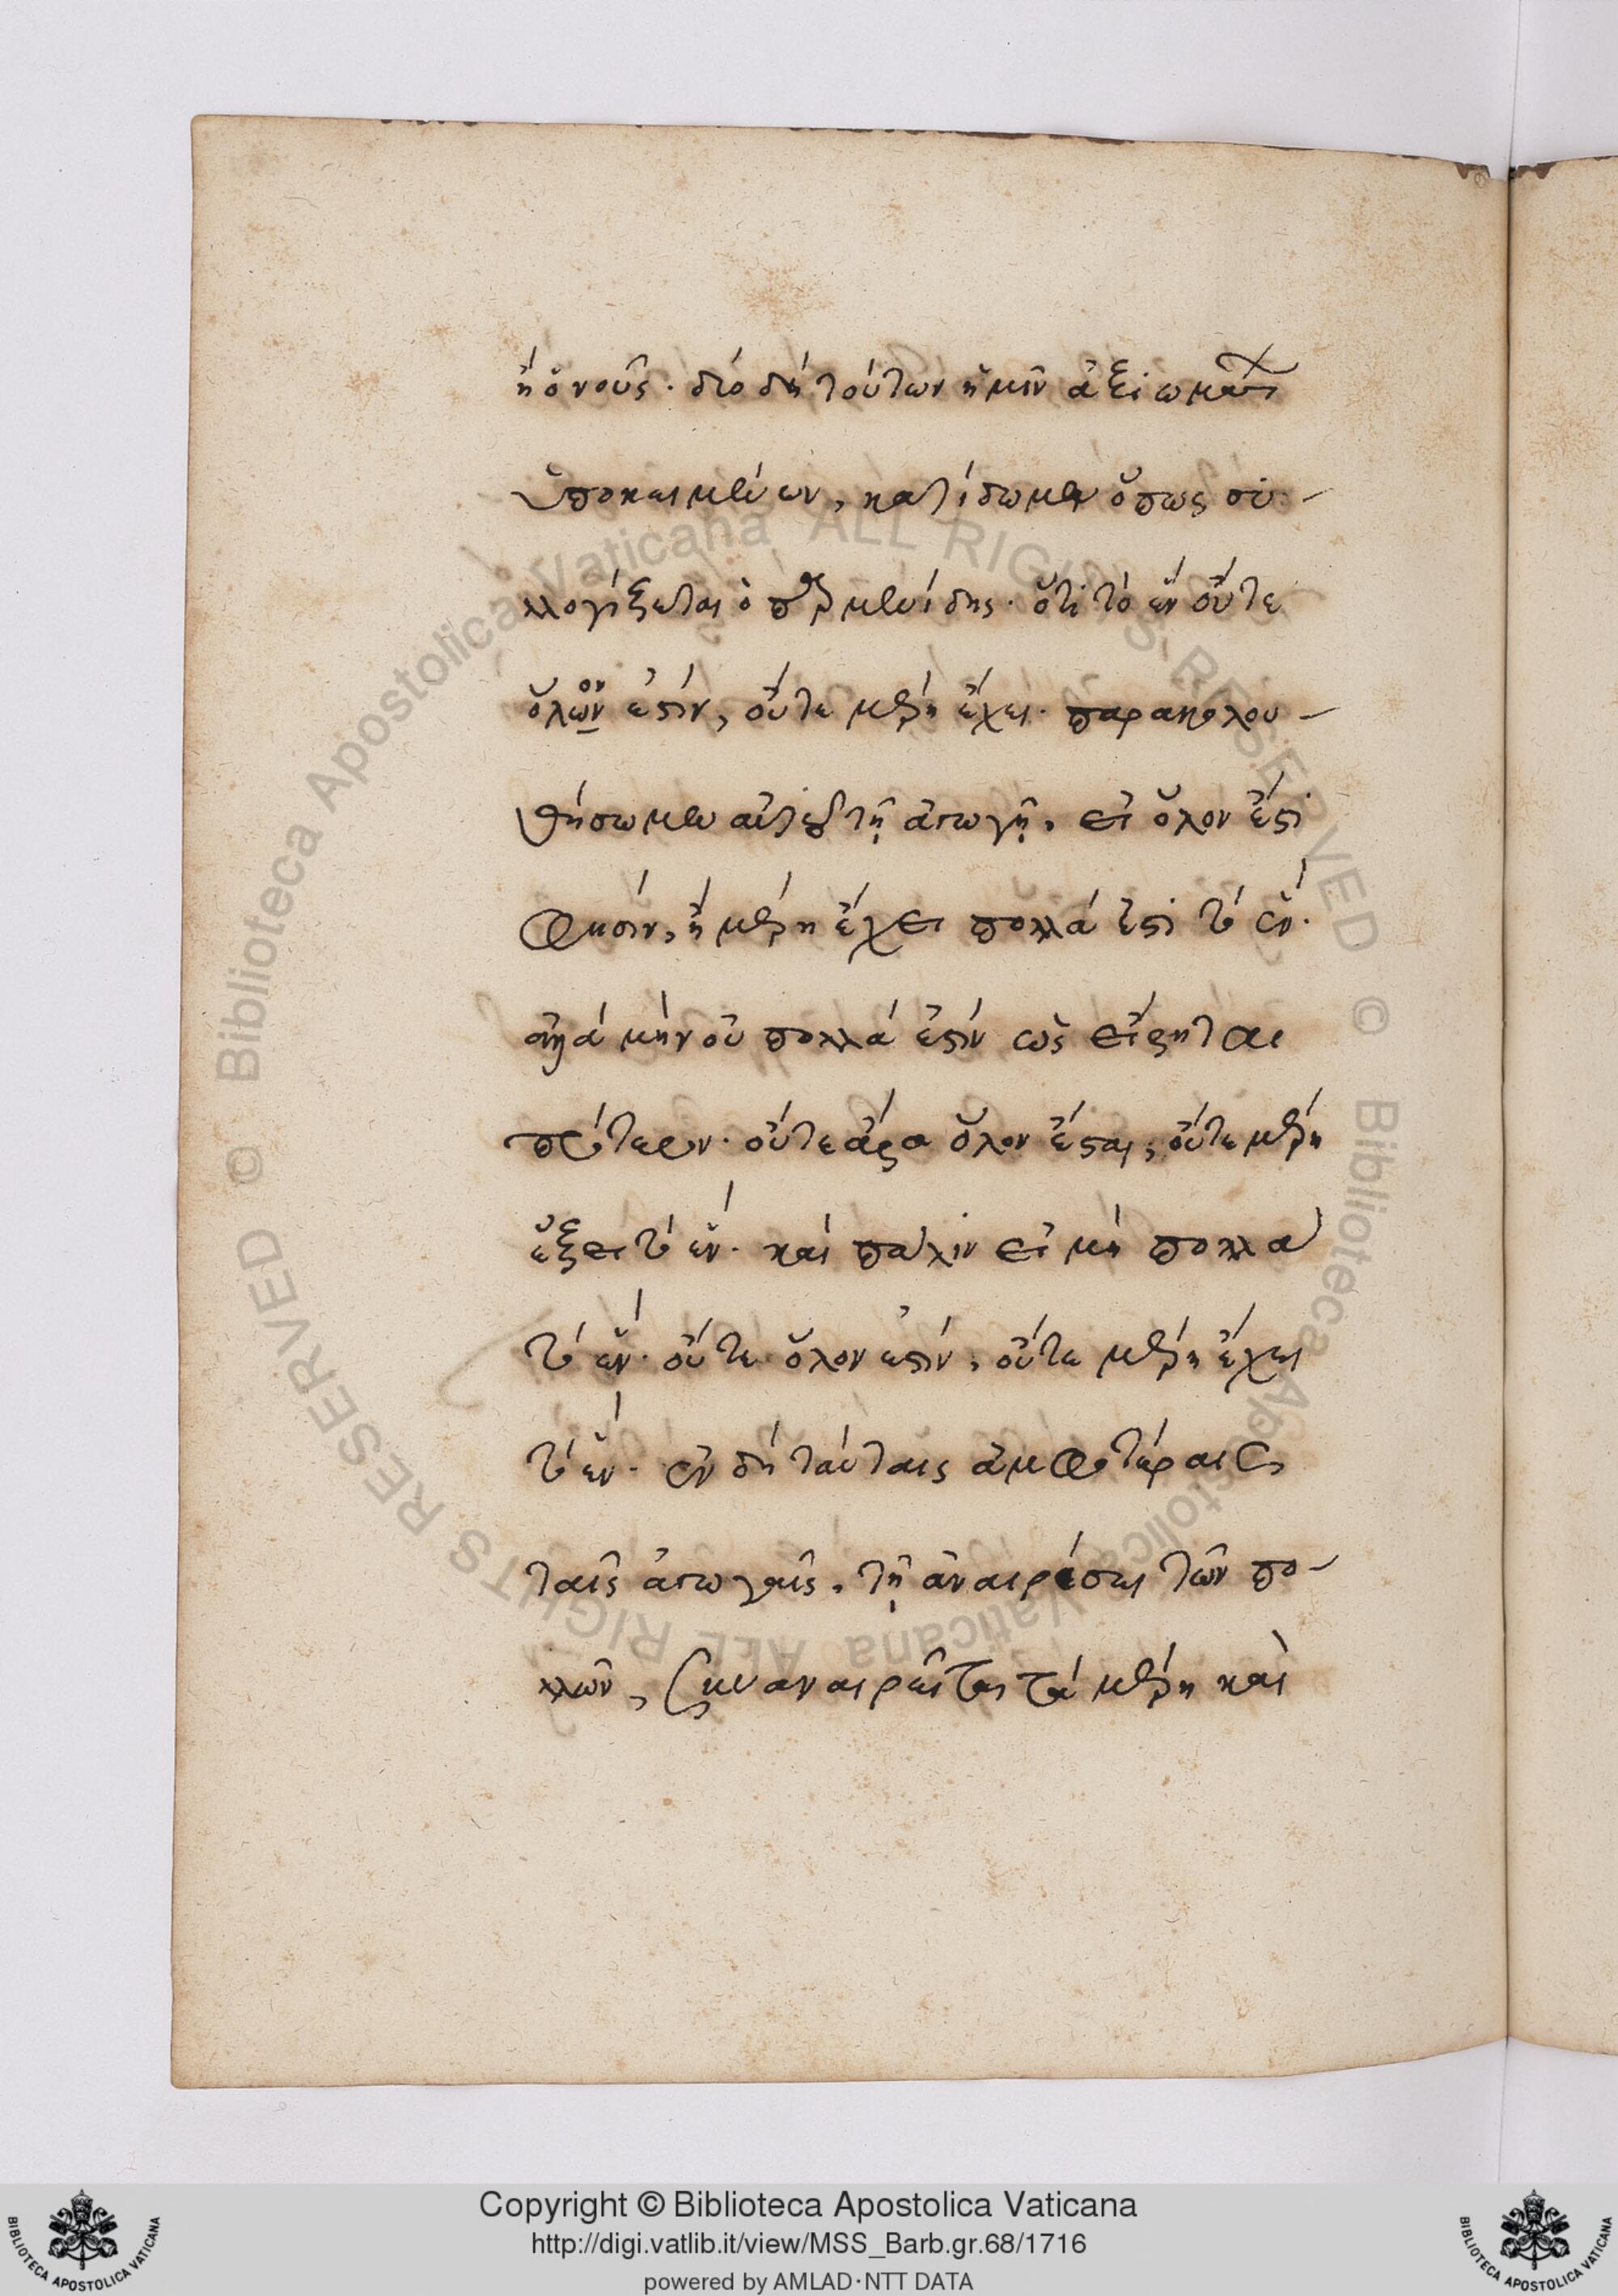 ἢ ὁ νοῦς. διὸ δὴ τούτων ἡμῖν ἀξιωμάτων
ὑποκειμένων, κατίδωμεν ὅπως συ-
λλογίζεται ὁ παρμενίδης. ὅτι τὸ ἓν οὔτε
ὅλον ἐστὶν, οὔτε μέρη ἔχει. παρακολου-
θήσωμεν αὐτοῦ τῇ ἀπωγῇ. εἰ ὅλον ἐστὶ
φησὶν, ἢ μέρη ἔχει πολλά ἐστι τὸ ἕν.
ἀλλὰ μὴν οὐ πολλά ἐστιν ὡς εἴρηται
πρότερον. οὔτε ἄρα ὅλον ἔσται, οὔτε μέρη
ἕξει τὸ ἕν. καὶ πάλιν εἰ μὴ πολλὰ
τὸ ἕν. οὔτε ὅλον ἐστὶν, οὔτε μέρη ἔχει
τὸ ἕν. ἐν δὴ ταύταις ἀμφοτέραις
ταῖς ἀπωγαῖς, τῇ ἀναιρέσει τῶν πο-
λλῶν, συναναιρεῖται τὰ μέρη καὶ
Copyright © Biblioteca Apostolica Vaticana
http://digi.vatlib.it/view/MSS_Barb.gr.68/1716
powered by AMLAD·NTT DATA
BIBLIOTECA APOSTOLICA VATICANA
BIBLIOTECA APOSTOLICA VATICANA
© Biblioteca Apostolica Vaticana ALL RIGHTS RESERVED © Biblioteca Apostolica Vaticana ALL RIGHTS RESERVED